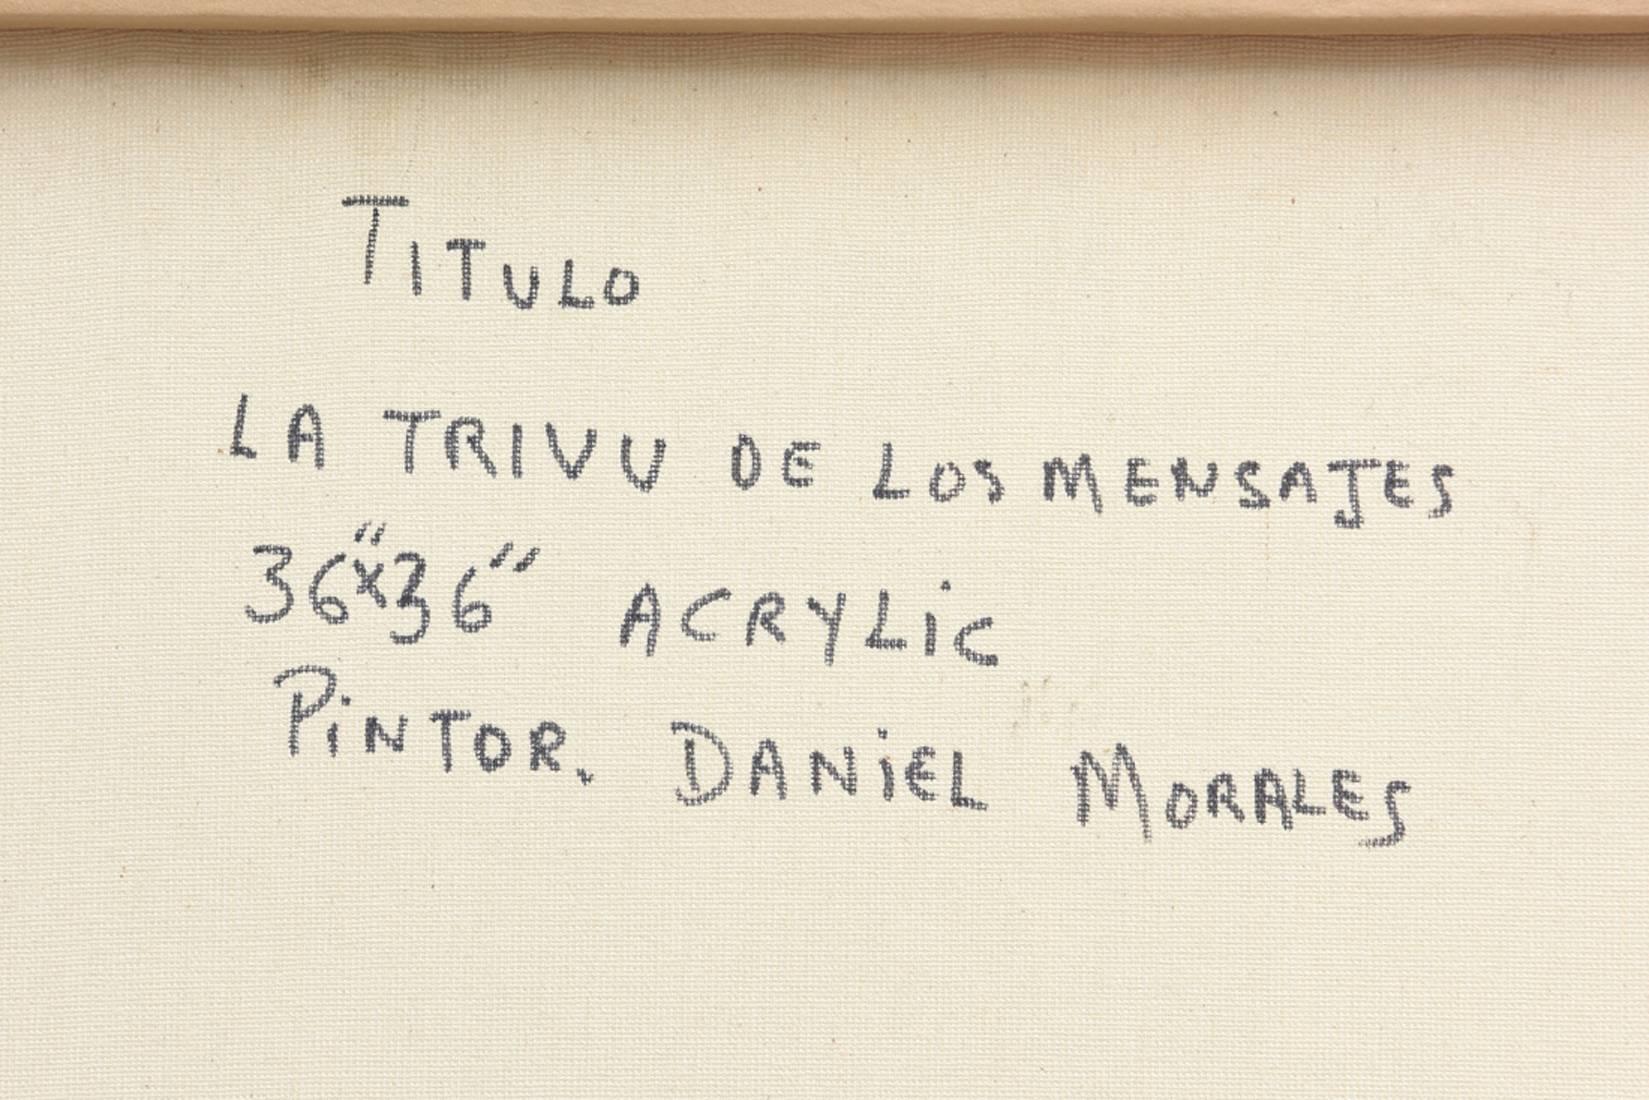 TITULO
LA TRIVU DE LOS MENSAJES
36"x36" ACRYLiC
PiNTOR. DANiEL MORALES